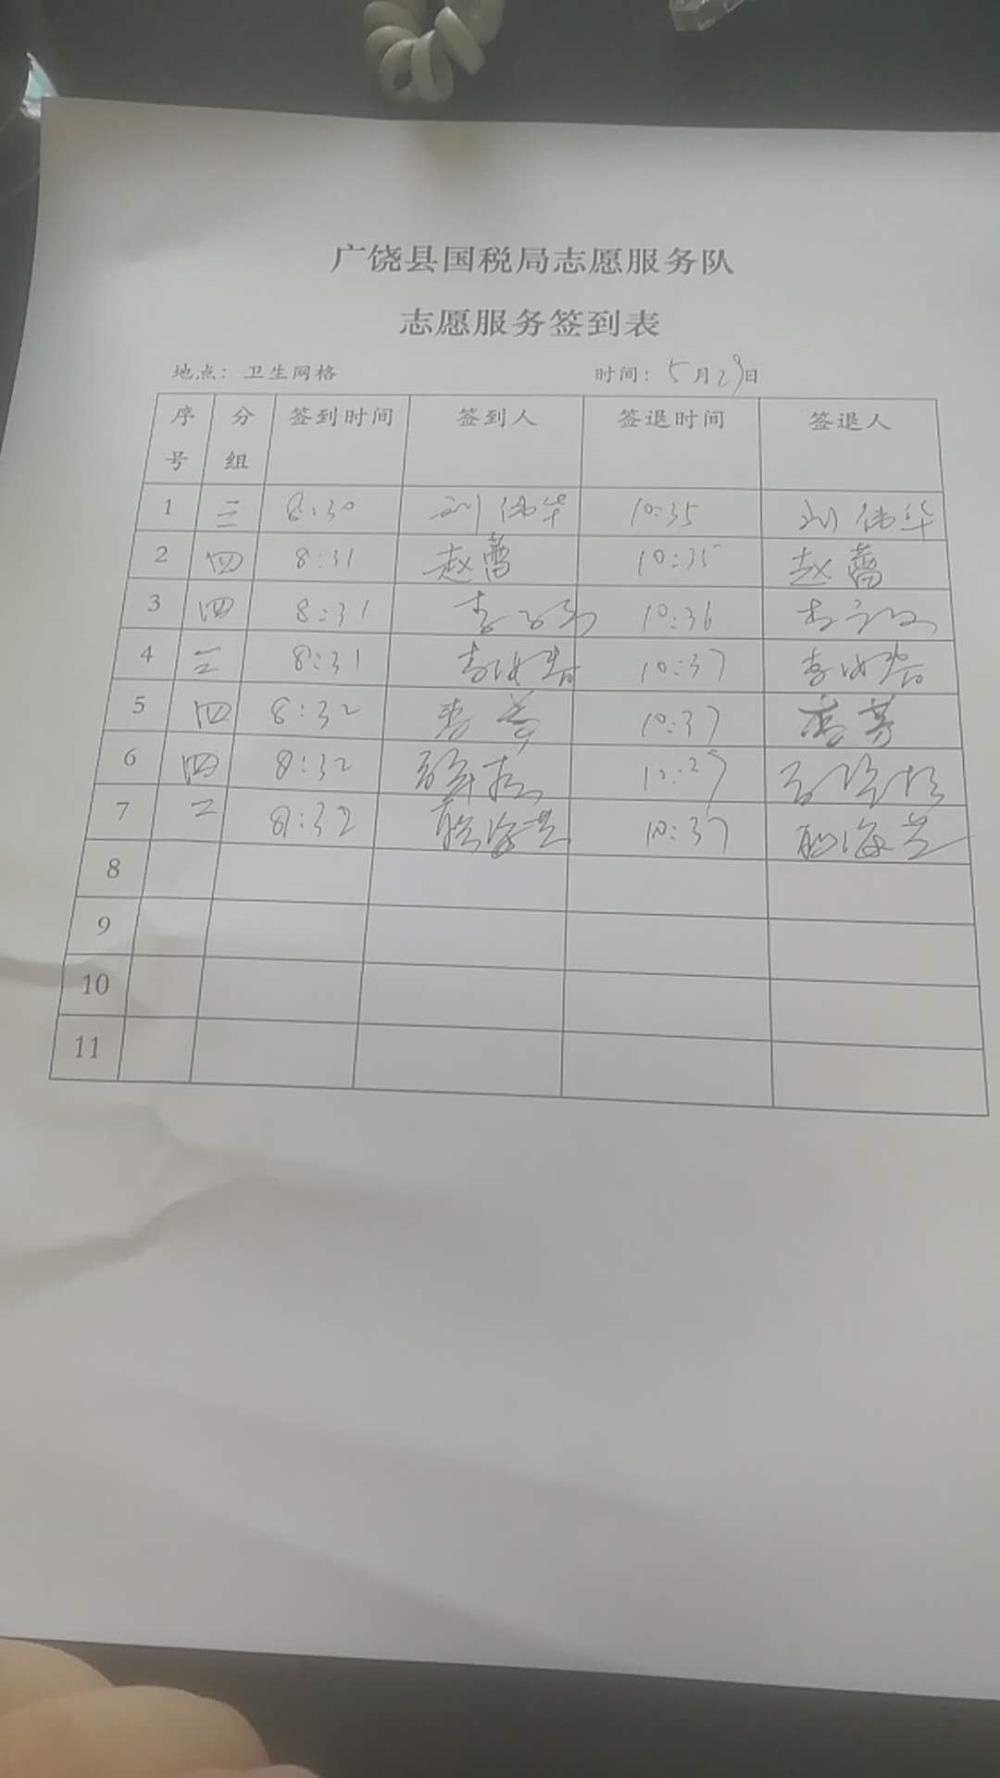 广饶县国税局志愿服务队
志愿服务签到表
地点：卫生网格 时间：5月29日
序号 分组 签到时间 签到人 签退时间 签退人
1 三 8:30 刘伟华 10:35 刘伟华
2 四 8:31 赵蕾 10:35 赵蕾
3 四 8:31 李 10:36 李
4 三 8:31 李 10:37 李
5 四 8:32 10:37
6 四 8:32
7 二 8:32 海兰 10:37 海兰
8
9
10
11